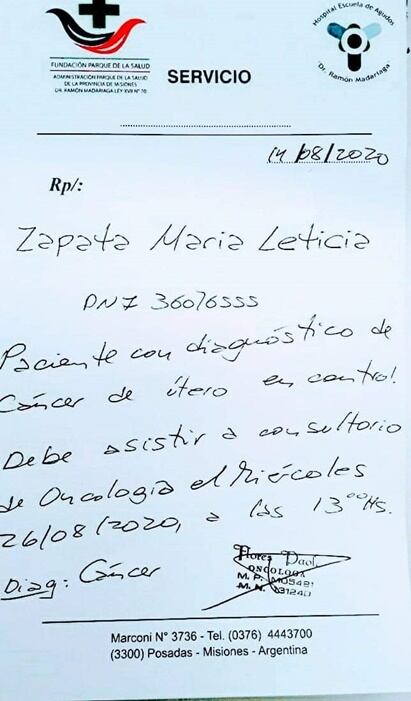 FUNDACIÓN PARQUE DE LA SALUD
ADMINISTRACIÓN PARQUE DE LA SALUD
DE LA PROVINCIA DE MISIONES
DR. RAMÓN MADARIAGA LEY XVII Nº 70
Hospital Escuela de Agudos
"Dr. Ramón Madariaga"
SERVICIO
14/08/2020
Rp/:
Zapata Maria Leticia
DNI 36076555
Paciente con diagnóstico de
Cáncer de útero en control.
Debe asistir a consultorio
de Oncología el Miércoles
26/08/2020, a las 13⁰⁰Hs.
Diag: Cáncer
Flores Paola
ONCOLOGA
M. P.
M. N.
Marconi N° 3736 - Tel. (0376) 4443700
(3300) Posadas - Misiones - Argentina